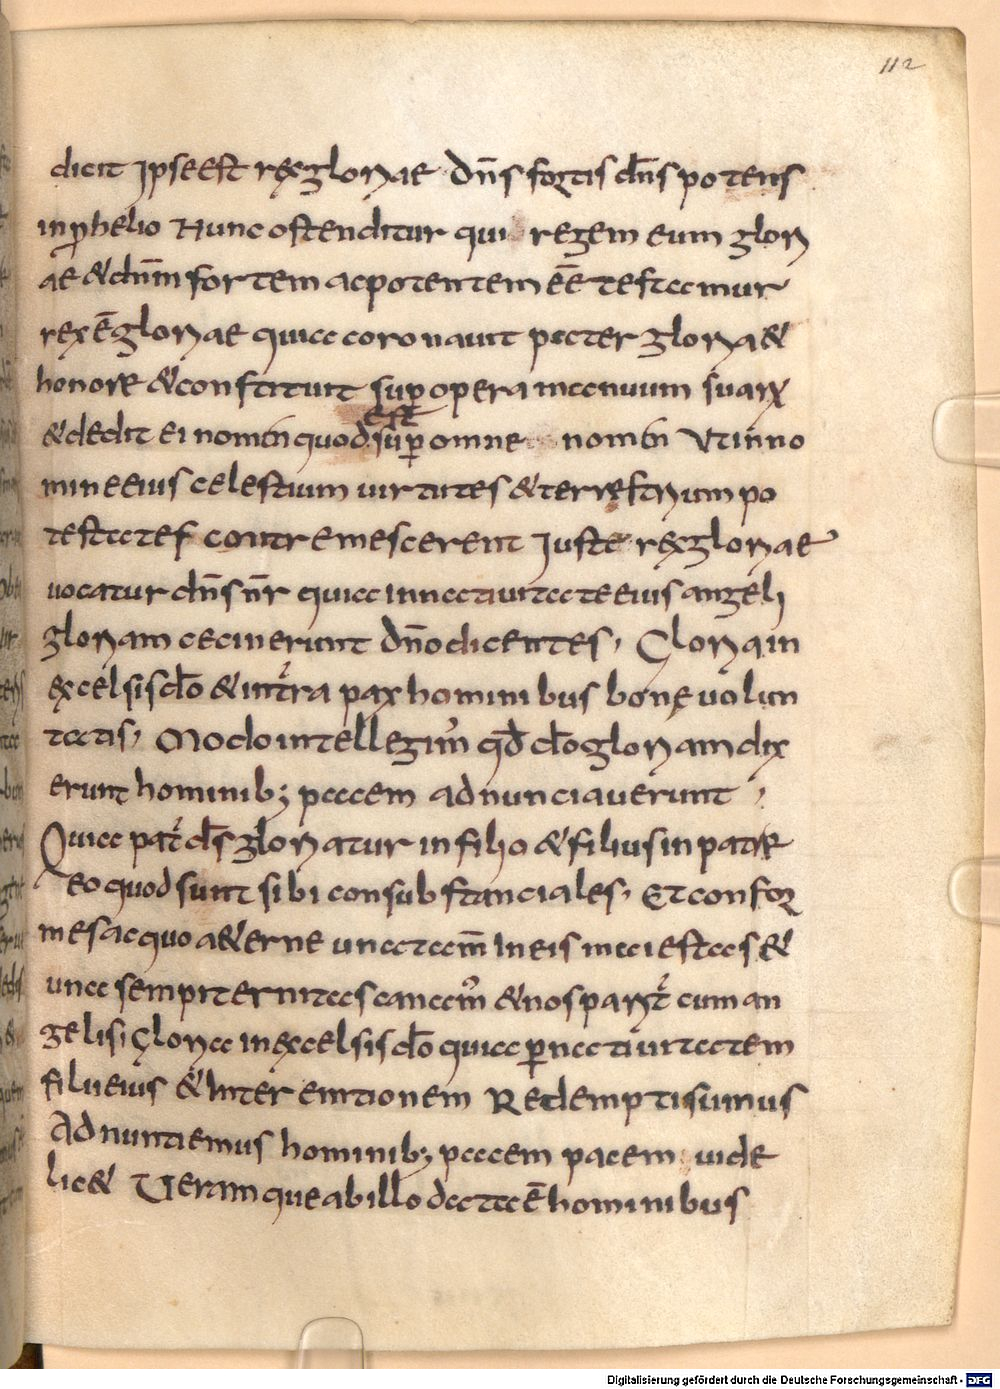 112
dicit ipse est rex gloriae dn̄s fortis dn̄s potens
in p̄helio Nunc ostenditur qui regem eum glori
ae & dn̄m fortem ac potentem eē testamur
rex ē gloriae quia coronavit pater gloria &
honore & constituit sup̱ opera manuum suarꝝ
est
& dedit ei nomen quod sup̱ omne nomen Ut in no
mine eius celestium virtutes & terręstrium po
testates contremescerent Iuste rex gloriae
vocatur dn̄s nr̄ quia in nativitate eius angeli
gloriam cecinerunt dn̄o dicentes, Gloria in
excelsis dō & in tr̄ra pax hominibus bonę volun
tatis, Modo intellegim᾿ qđ dō gloriam dix
erunt hominib; pacem adnunciaverunt,
Quia pat͛ dś gloriatur in filio & filius in patre
eo quod sunt sibi consubstanciales, Et confor
mes ac quo a&erne unatam̄ In eis maiestas &
una sempiternitas canam᾿ & nos parit͛ cum an
gelis; Gloria in excelsis dō quia p̱ nativitatem
filii eius & Inter emtionem Redempti sumus
Adnuntiemus hominib; pacem pacem vide
lic& Veram que ab illo data ē hominibus
Digitalisierung gefördert durch die Deutsche Forschungsgemeinschaft - DFG